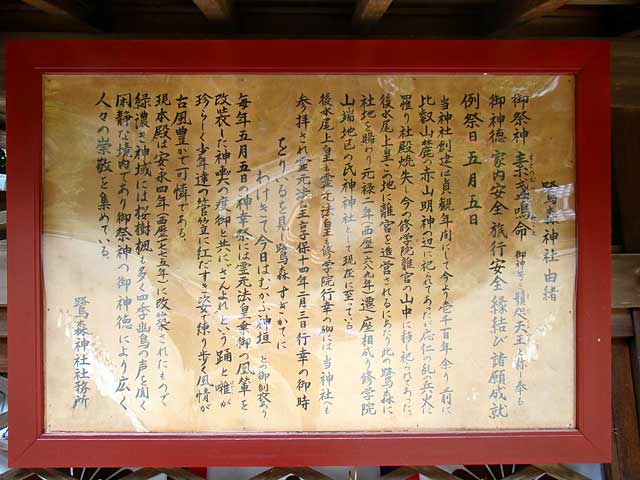 鷺森神社由緒
御祭神 素盞嗚命 御神号を頭咫天王と称し奉る
御神徳 家内安全 旅行安全 縁結び 諸願成就
例祭日 五月五日
当神社創建は貞観年間にして今より壱千百年余り前に
比叡山麓の赤山明神の辺に祀られてあったが応仁の乱の兵火に
罹り社殿焼失し今の修学院離宮の山中に移し祀られてあった、
後水尾上皇この地に離宮を造営されるにあたり此の鷺森に
社地を賜わり元禄二年(西暦一六八九年)遷座相成り修学院
山端地区の氏神神社として現在に至っている。
後水尾上皇も霊元法皇も修学院行幸の砌には当神社へも
参拝され霊元法皇は享保十四年二月三日行幸の御時
をりゐるを見し鷺森すぎがてに
わけきて今日はむかふ神垣 との御製あり
毎年五月五日の神幸祭には霊元法皇乗御の鳳輦を
改装した神輿の渡御と共に、さんよれという踊と囃が
珍らしく少年達の菅笠に紅だすき姿で練り歩く風情が
古風豊かで可憐である。
現本殿は安永四年(西暦一七七五年)に改築されたもので
緑濃き神域には桜樹楓も多く四季出鳥の声を聞く
閑静な境内であり御祭神の御神徳により広く
人々の崇敬を集めている。
鷺森神社社務所